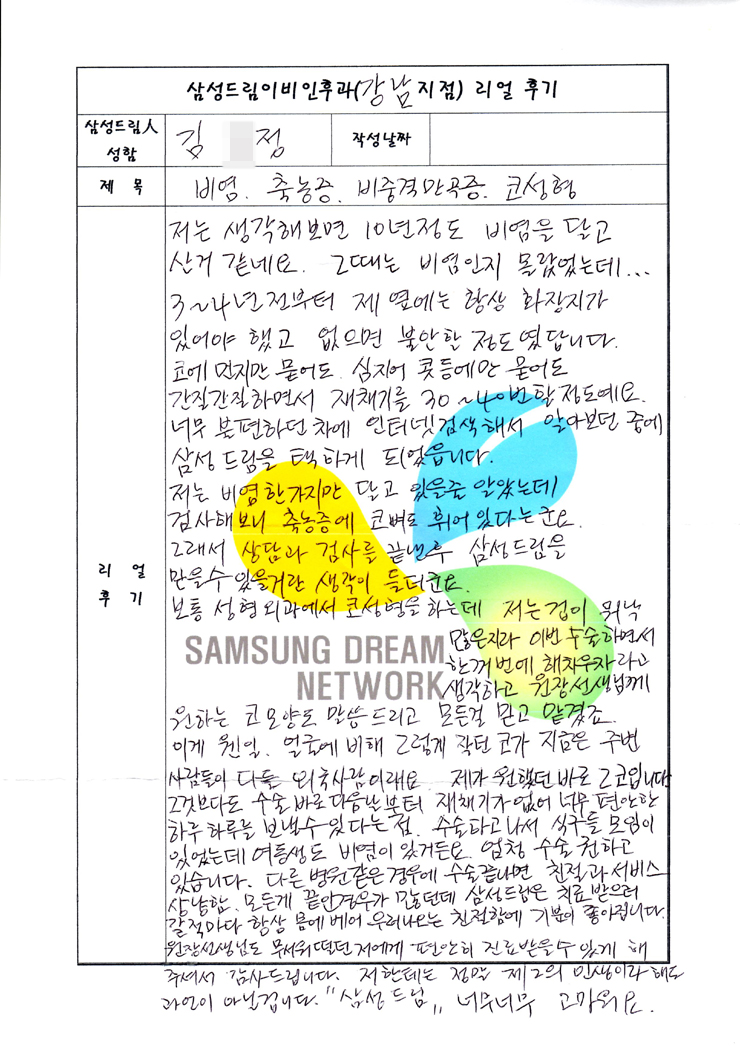 삼성드림이비인후과(강남지점) 리얼 후기
삼성드림人 성함
김 정
작성날짜
제 목
비염. 축농증. 비중격만곡증. 코성형
리 얼
후 기
저는 생각해보면 10년정도 비염을 달고
산거 같네요. 그때는 비염인지 몰랐었는데...
3~4년전부터 제 옆에는 항상 화장지가
있어야 했고 없으면 불안한 정도였답니다.
코에 먼지만 묻어도. 심지어 콧등에만 묻어도
간질간질하면서 재채기를 30~40번 할정도예요.
너무 불편하던차에 인터넷검색해서 알아보던 중에
삼성드림을 택하게 되었습니다.
저는 비염한가지만 달고 있을줄 알았는데
검사해보니 축농증에 코뼈도 휘어있다는군요.
그래서 상담과 검사를 끝낸후 삼성드림을
믿을수 있을거란 생각이 들더군요.
보통 성형외과에서 코성형을 하는데 저는겁이 워낙
많은지라 이번 수술하면서
한꺼번에 해치우자라고
생각하고 원장선생님께
원하는 코모양도 말씀드리고 모든걸 믿고 맡겼죠.
이게 웬일. 얼굴에 비해 그렇게 작던 코가 지금은 주변
사람들이 다들 외국사람이래요. 제가 원했던 바로 그코입니다
그것보다도 수술 바로 다음날부터 재채기가 없어 너무 편안한
하루하루를 보낼수 있다는점. 수술하고나서 식구들 모임이
있었는데 여동생도 비염이 있거든요. 엄청 수술 권하고
있습니다. 다른 병원같은 경우에 수술끝나면 친절과 서비스
상냥함. 모든게 끝인경우가 많던데 삼성드림은 치료 받으러
갈적마다 항상 몸에 베어 우러나오는 친절함에 기분이 좋아집니다.
원장선생님도 무서워떨던 저에게 편안히 진료받을수 있게 해
주셔서 감사드립니다. 저한테는 정말 제2의 인생이라 해도
과언이 아닐겁니다. "삼성드림" 너무너무 고마워요.
SAMSUNG DREAM
NETWORK